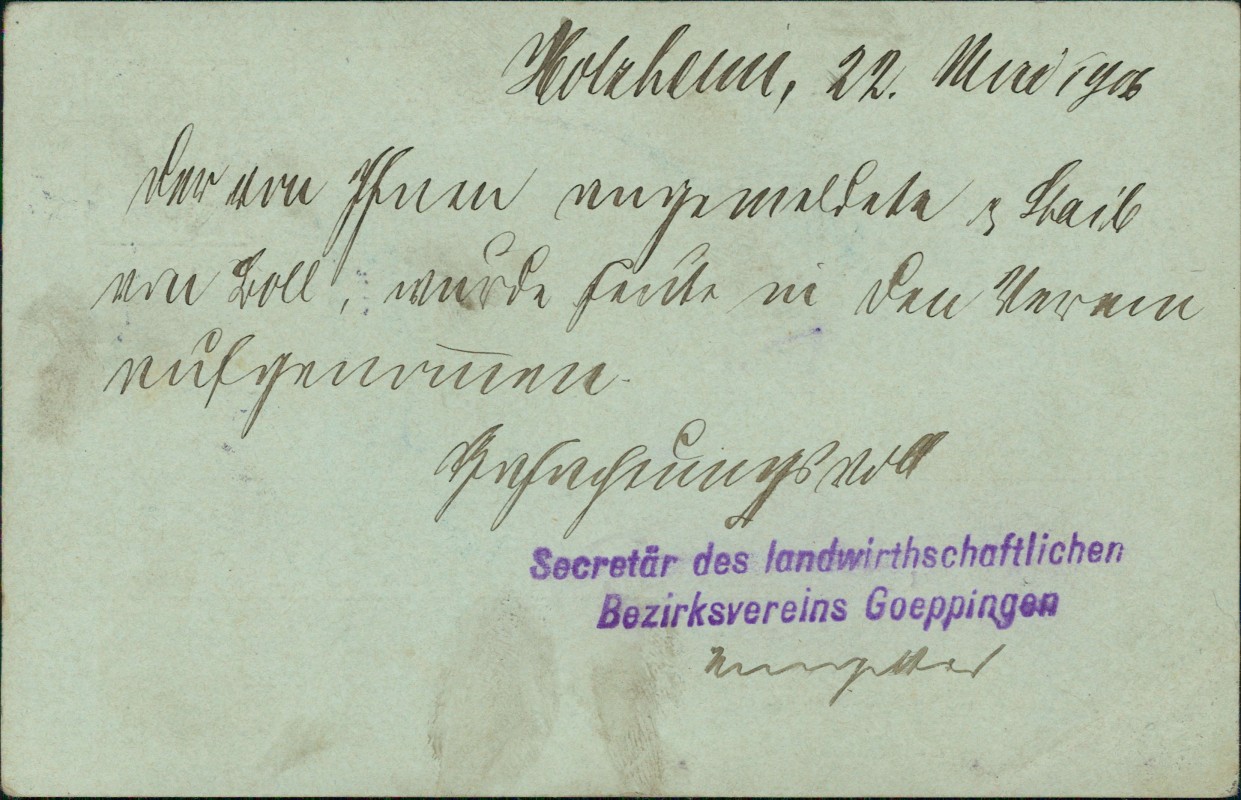 Holzheim, 22. Mai 1906
Der von Ihnen angemeldete Staib
von Boll, wurde heute in den Verein
aufgenom̅en.
Hochachtungsvoll
Secretär des landwirthschaftlichen
Bezirksvereins Goeppingen